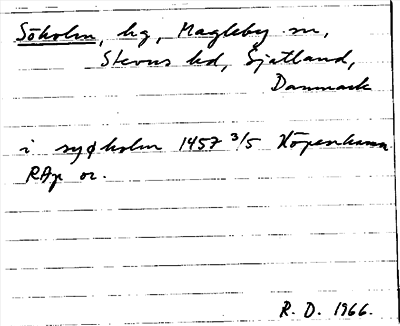 Söholm, hg, Magleby sn,
Stevns hd, Sjätland,
Danmark
i syøholm 1457 3/5 Köpenhamn
RAp or.
R. D. 1966.